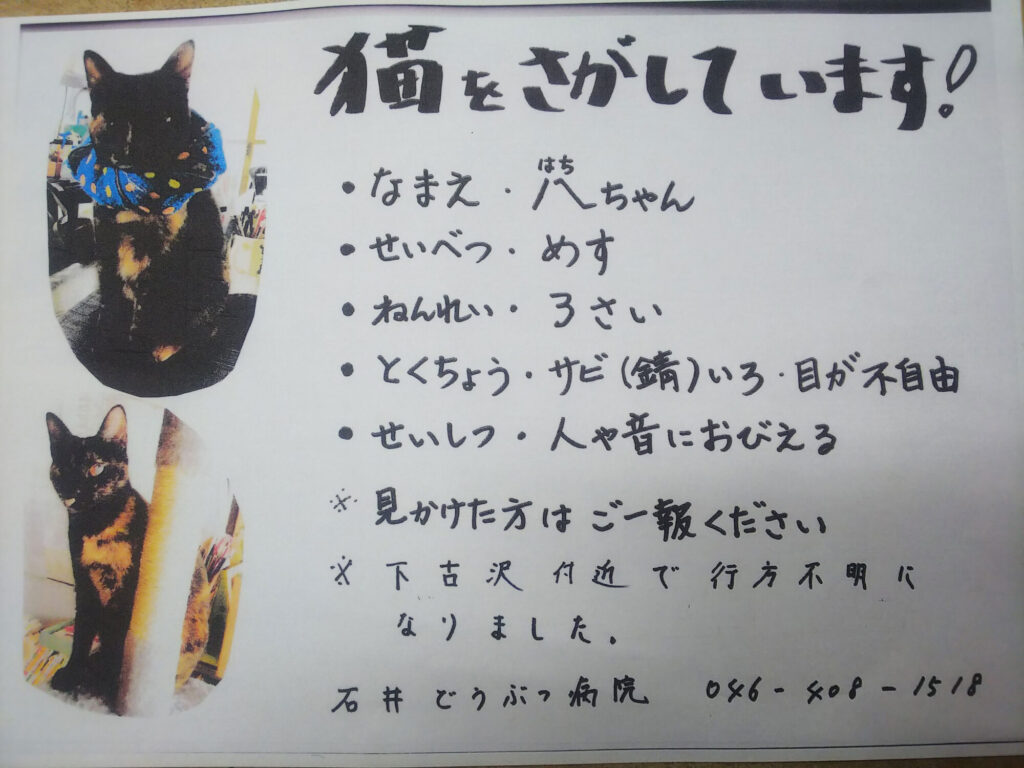 猫をさがしています!
・なまえ・八ちゃん
はち
・せいべつ・めす
・ねんれい・3さい
・とくちょう・サビ(錆)いろ・目が不自由
・せいしつ・人や音におびえる
※見かけた方はご一報ください
※下古沢付近で行方不明に
なりました。
石井どうぶつ病院 046-408-1518